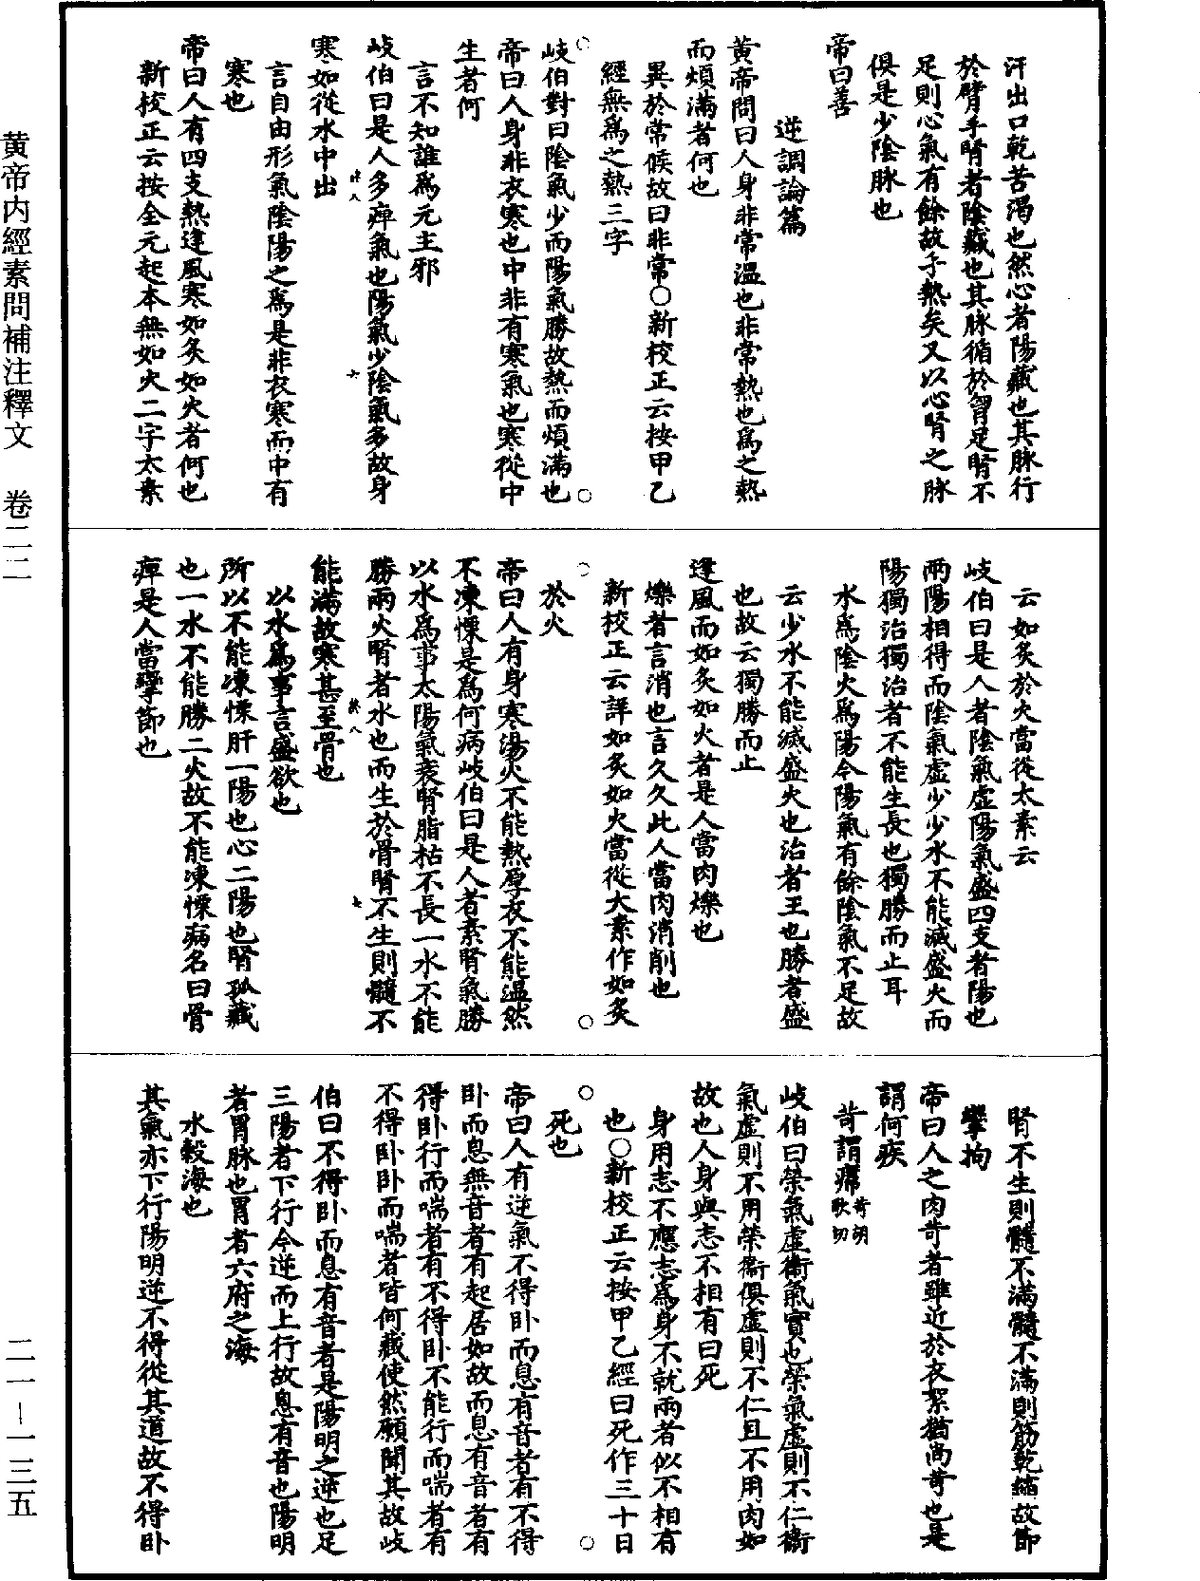 汗出口乾苦渴也然心者陽藏也其脉行
於臂手腎者陰藏也其脉循於胷足腎不
足則心氣有餘故手熱矣又以心腎之脉
俱是少陰脉也
帝曰善
逆調論篇
黄帝問曰人身非常溫也非常熱也爲之熱
而煩滿者何也
異於常候故曰非常○新校正云按甲乙
經無爲之熱三字
岐伯對曰陰氣少而陽氣勝故熱而煩滿也
帝曰人身非衣寒也中非有寒氣也寒從中
生者何
言不知誰爲元主邪
岐伯曰是人多痺氣也陽氣少陰氣多故身
寒如從水中出
言自由形氣陰陽之爲是非衣寒而中有
寒也
帝曰人有四支熱逢風寒如炙如火者何也
新校正云按全元起本無如火二字太素
云如炙於火當從太素云
岐伯曰是人者陰氣虛陽氣盛四支者陽也
兩陽相得而陰氣虛少少水不能減盛火而
陽獨治獨治者不能生長也獨勝而止耳
水爲陰火爲陽今陽氣有餘陰氣不足故
云少水不能減盛火也治者王也勝者盛
也故云獨勝而止
逢風而如炙如火者是人當肉爍也
爍者言消也言久久此人當肉消削也
新校正云詳如炙如火當從太素作如炙
於火
帝曰人有身寒湯火不能熱厚衣不能温然
不凍慄是爲何病岐伯曰是人者素腎氣勝
以水爲事太陽氣衰腎脂枯不長一水不能
勝兩火腎者水也而生於骨腎不生則髓不
能滿故寒甚至骨也
以水爲事言盛欲也
所以不能凍慄肝一陽也心二陽也腎孤藏
也一水不能勝二火故不能凍慄病名曰骨
痺是人當攣節也
腎不生則髓不滿髓不滿則筋乾縮故節
攣拘
帝曰人之肉苛者雖近於衣絮猶尚苛也是
謂何疾
苛謂𤸷苛胡歌切
岐伯曰榮氣虛衞氣實也榮氣虛則不仁衞
氣虛則不用榮衞俱虛則不仁且不用肉如
故也人身與志不相有曰死
身用志不應志爲身不就兩者似不相有
也○新校正云按甲乙經曰死作三十日
死也
帝曰人有逆氣不得卧而息有音者有不得
卧而息無音者有起居如故而息有音者有
得卧行而喘者有不得卧不能行而喘者有
不得卧卧而喘者皆何藏使然願聞其故岐
伯曰不得卧而息有音者是陽明之逆也足
三陽者下行今逆而上行故息有音也陽明
者胃脉也胃者六府之海
水穀海也
其氣亦下行陽明逆不得從其道故不得卧
黄帝内經素問補注釋文　卷二二
二一－一三五